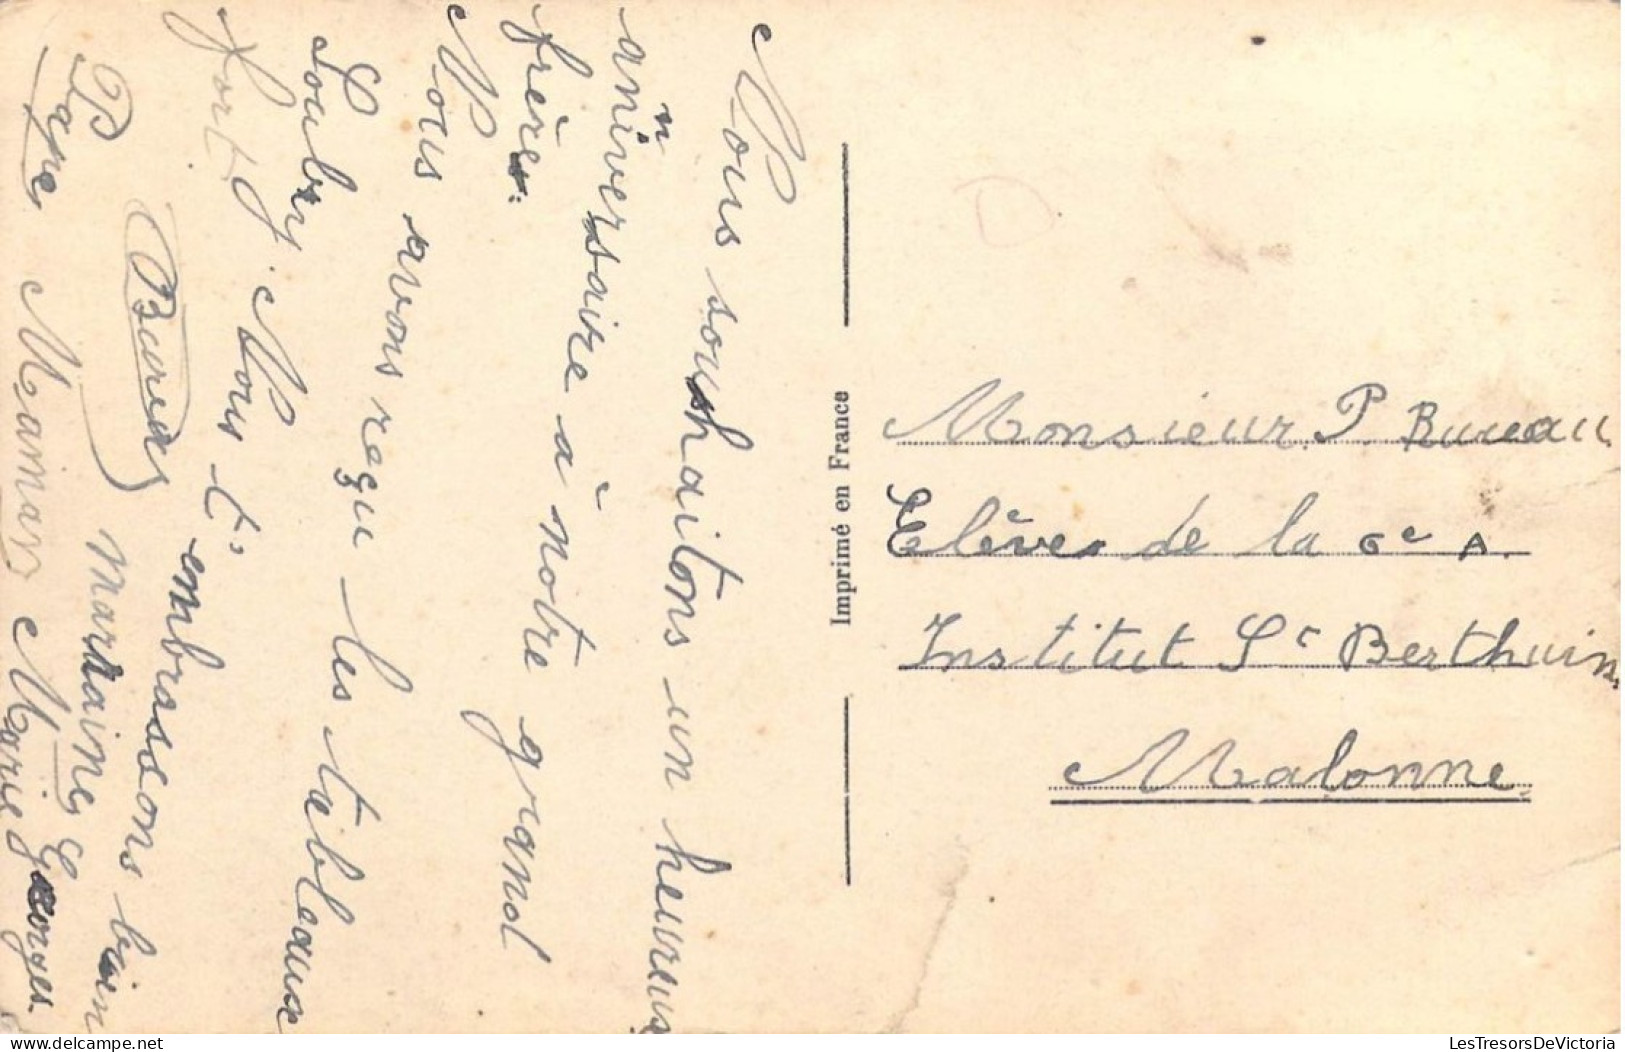 Nous souhaitons un heureux
aniversaire à notre grand
n
frère.
Nous avons reçu les tableaux
Soubry. Nous t'embrassons bien
fort.
Bureau
Papa Maman Marraine
Marie Georges.
Imprimé en France
Monsieur P. Bureau
Elèves de la 6e A.
Institut St Berthuin
Malonne
LesTresorsDeVictoria
delcampe.net